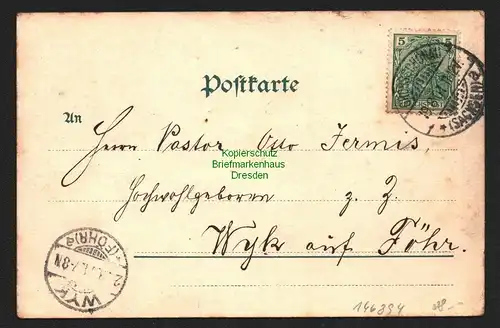 5
Postkarte
An
Herrn Pastor Otto Jermis,
Kopierschutz
Briefmarkenhaus
Dresden
Hochwohlgeboren z. Z.
Wyk auf Föhr.
WYK
(FÖHR)
144394